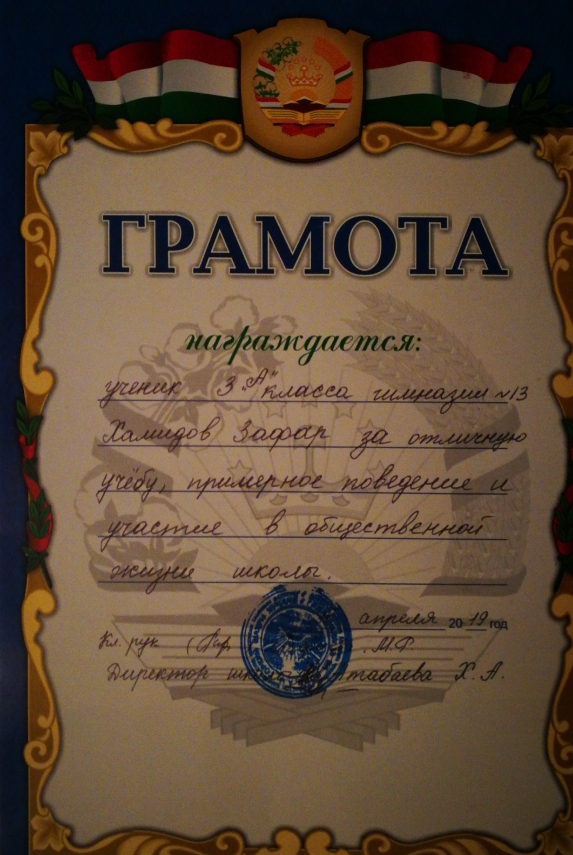 ГРАМОТА
награждается:
ученик 3 "А" класса гимназии №13
Хамидов Зафар за отличную
учёбу, примерное поведение и
участие в общественной
жизни школы.
апреля 2019 год
Кл. рук М.Ф.
Директор Х. А.